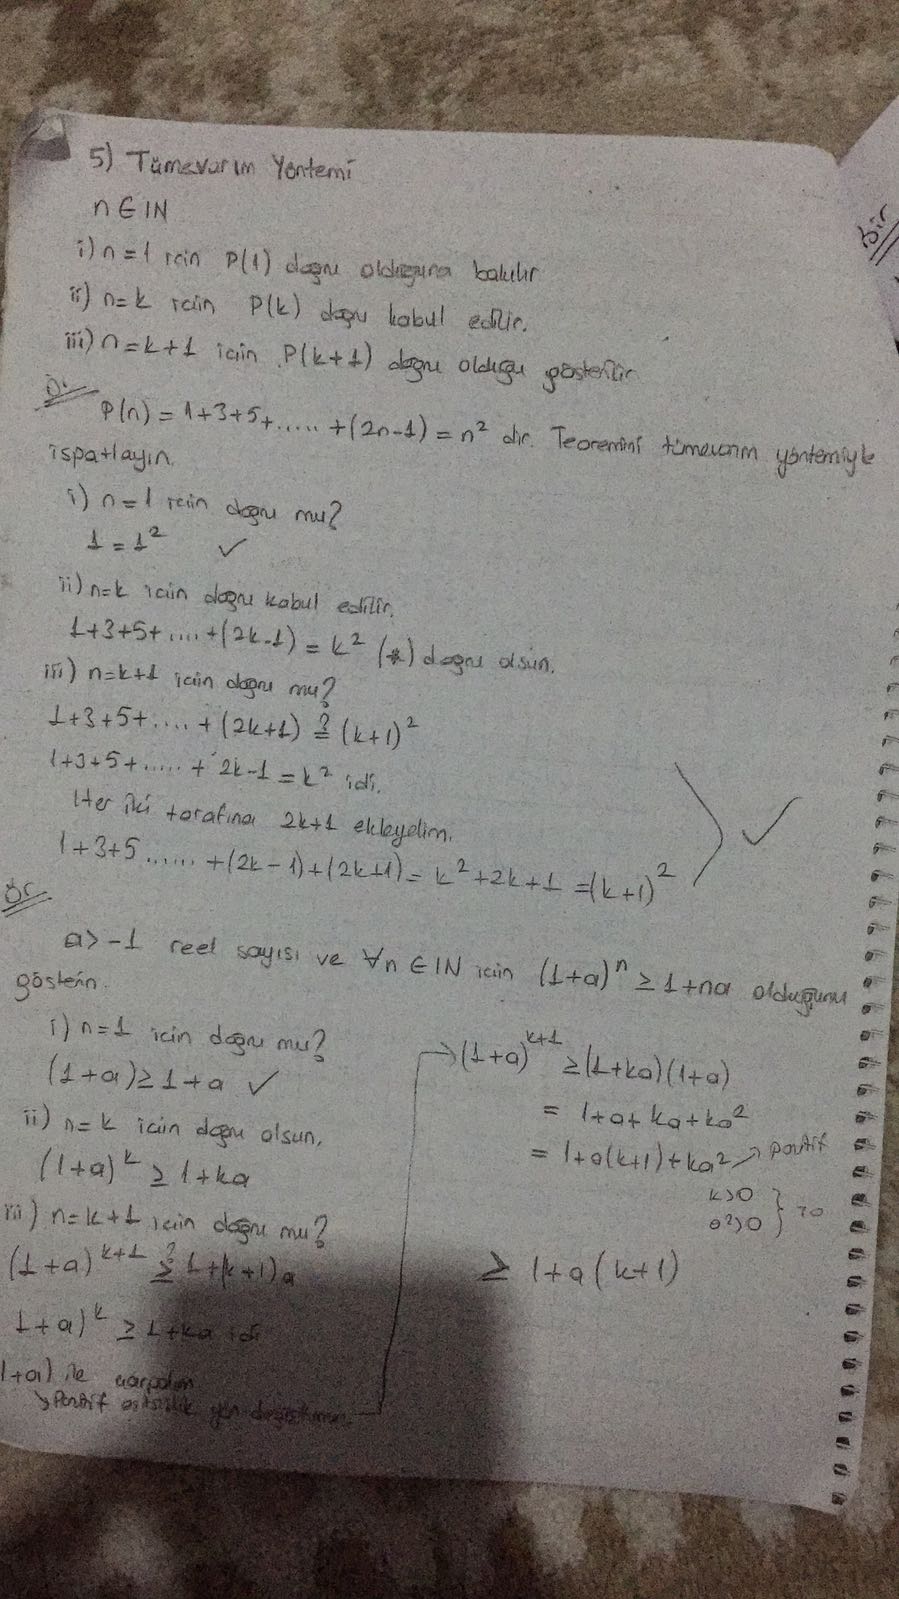 5) Tümevarım Yöntemi
n ∈ IN
i) n=1 için P(1) doğru olduğuna bakılır
ii) n=k için P(k) doğru kabul edilir.
iii) n=k+1 için P(k+1) doğru olduğu gösterilir.
Ör
P(n) = 1+3+5+.....+(2n-1) = n² dir. Teoremini tümevarım yöntemiyle
ispatlayın.
i) n=1 için doğru mu?
1 = 1² ✓
ii) n=k için doğru kabul edilir.
1+3+5+....+(2k-1) = k² (*) doğru olsun.
iii) n=k+1 için doğru mu?
1+3+5+....+(2k+1) ≟ (k+1)²
1+3+5+.....+2k-1 = k² idi.
Her iki tarafına 2k+1 ekleyelim.
1+3+5......+(2k-1)+(2k+1) = k²+2k+1 = (k+1)² ✓
Ör
a>-1 reel sayısı ve ∀n ∈ IN için (1+a)ⁿ ≥ 1+na olduğunu
gösterin.
i) n=1 için doğru mu?
(1+a) ≥ 1+a ✓
ii) n=k için doğru olsun.
(1+a)ᵏ ≥ 1+ka
iii) n=k+1 için doğru mu?
(1+a)ᵏ⁺¹ ≥? 1+(k+1)a
1+a)ᵏ ≥ 1+ka idi
1+a) ile çarpalım
↘ Pozitif eşitsizlik yön değiştirmez.
→ (1+a)ᵏ⁺¹ ≥ (1+ka)(1+a)
= 1+a+ka+ka²
= 1+a(k+1)+ka² → pozitif
k>0
a²>0 } >0
≥ 1+a(k+1)
bir